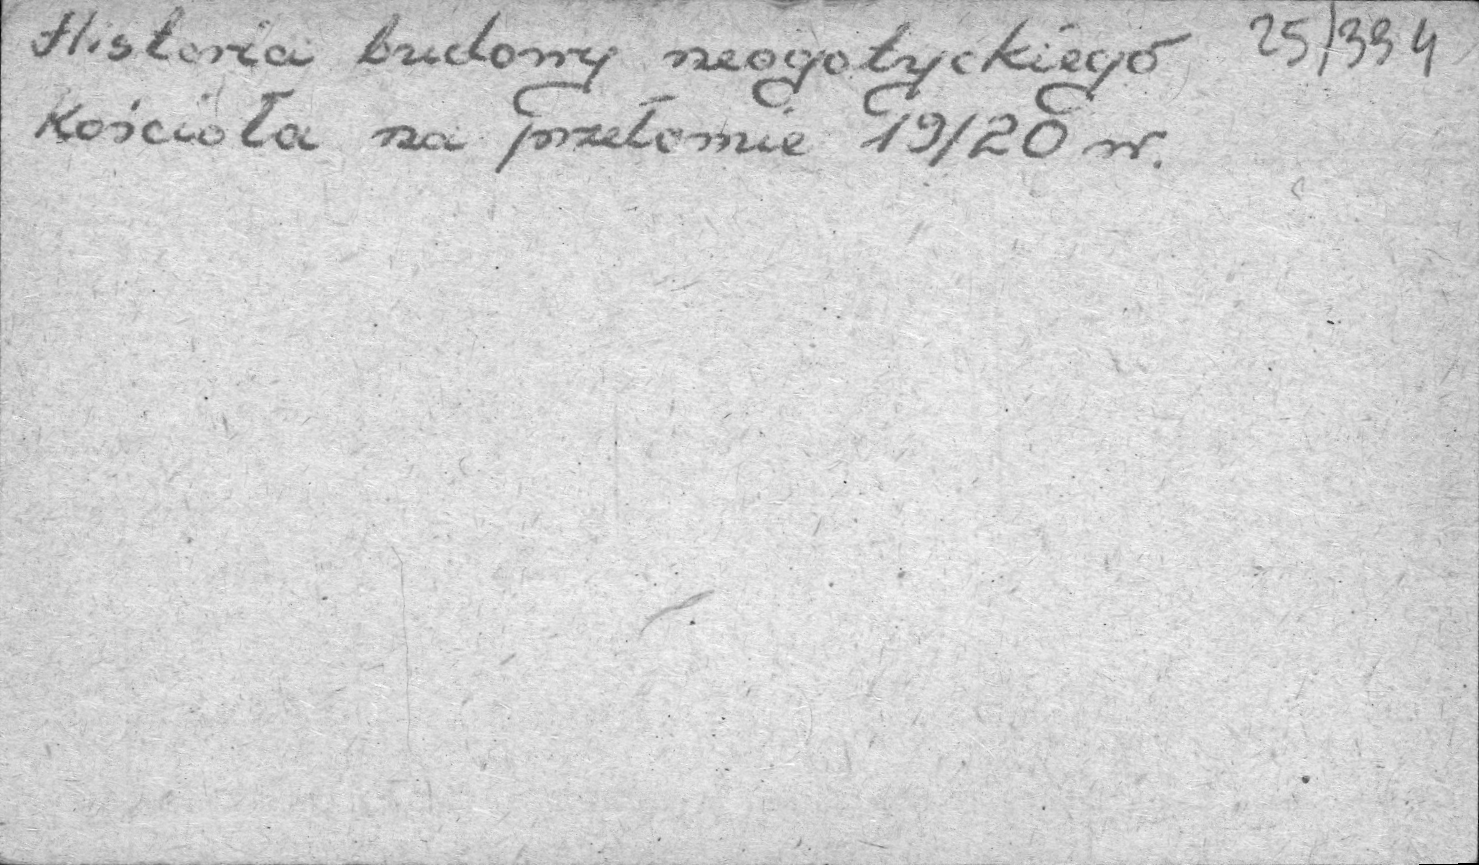 Historia budowy neogotyckiego 25/394
Kościoła na przełomie 19/20 w.